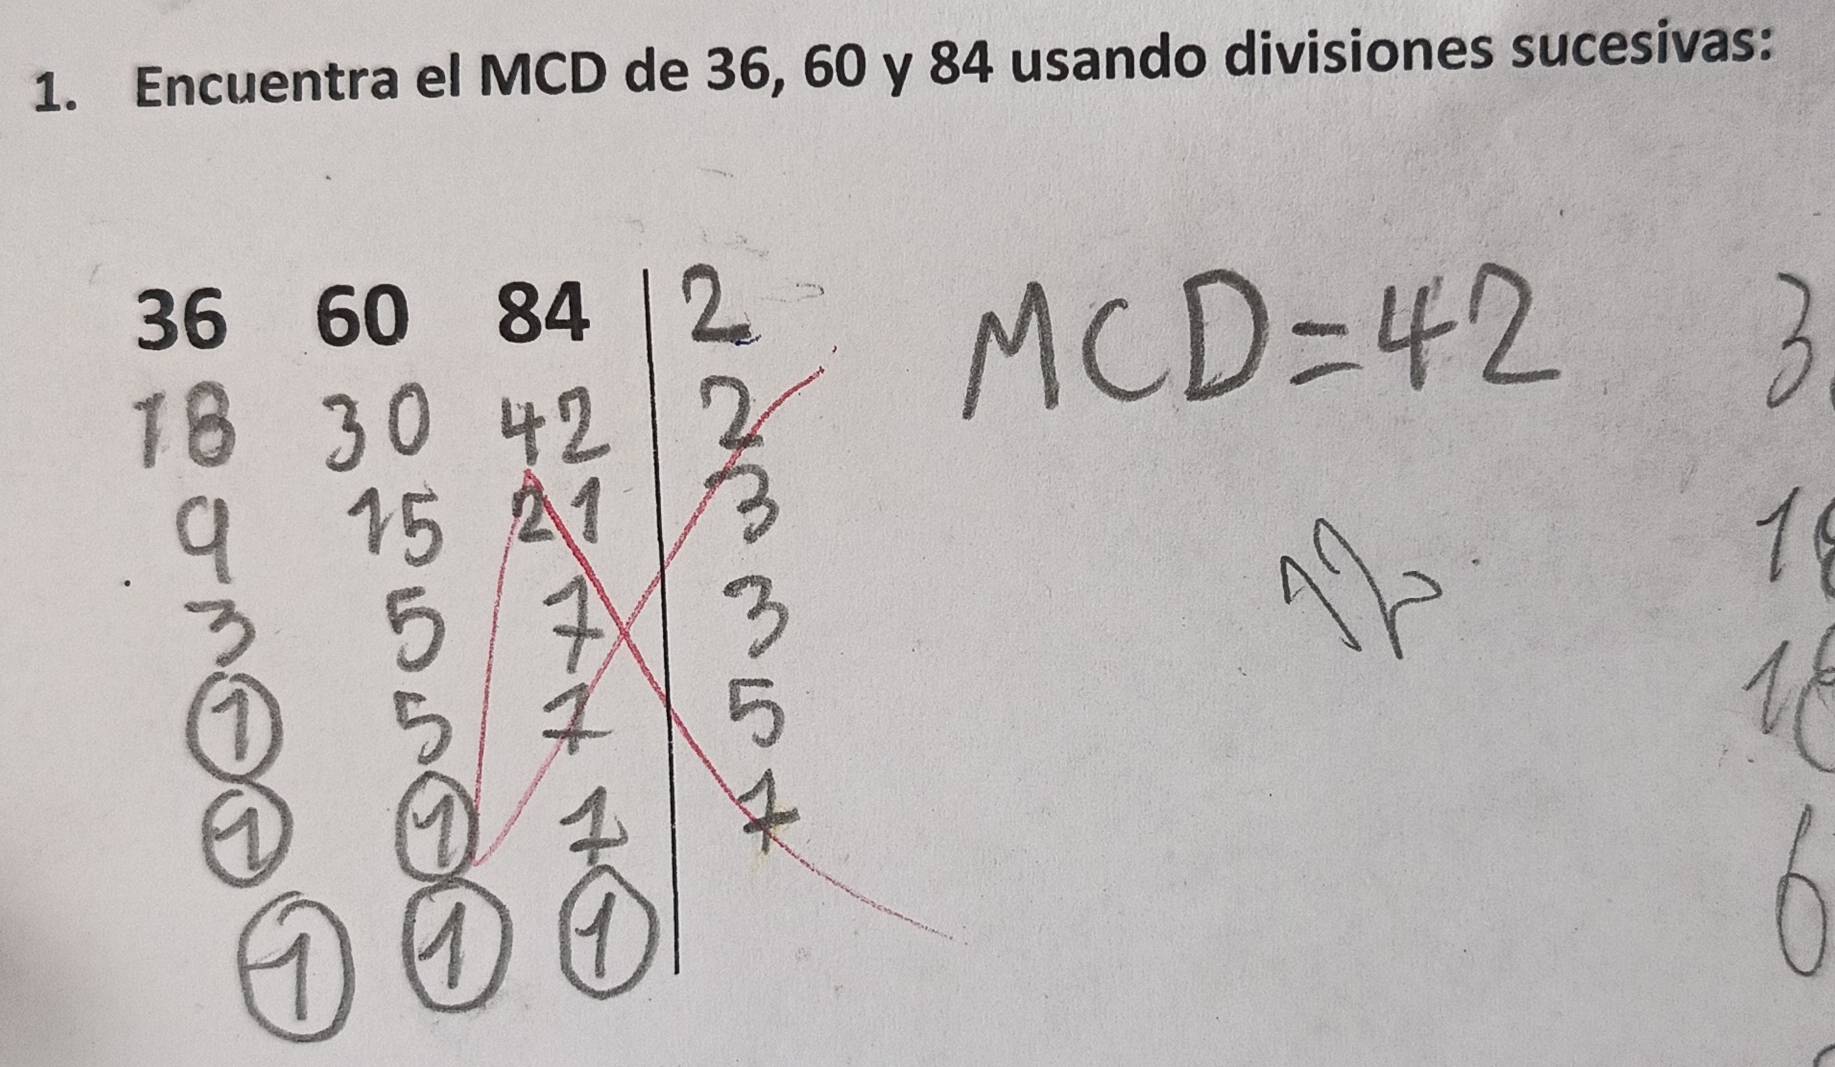 1. Encuentra el MCD de 36, 60 y 84 usando divisiones sucesivas:
36 60 84 | 2
18 30 42 | 2
9 15 21 | 3
3 5 7 | 3
1 5 7 | 5
1 1 7 | 7
1 1 1
MCD=42
12
3
1
18
6